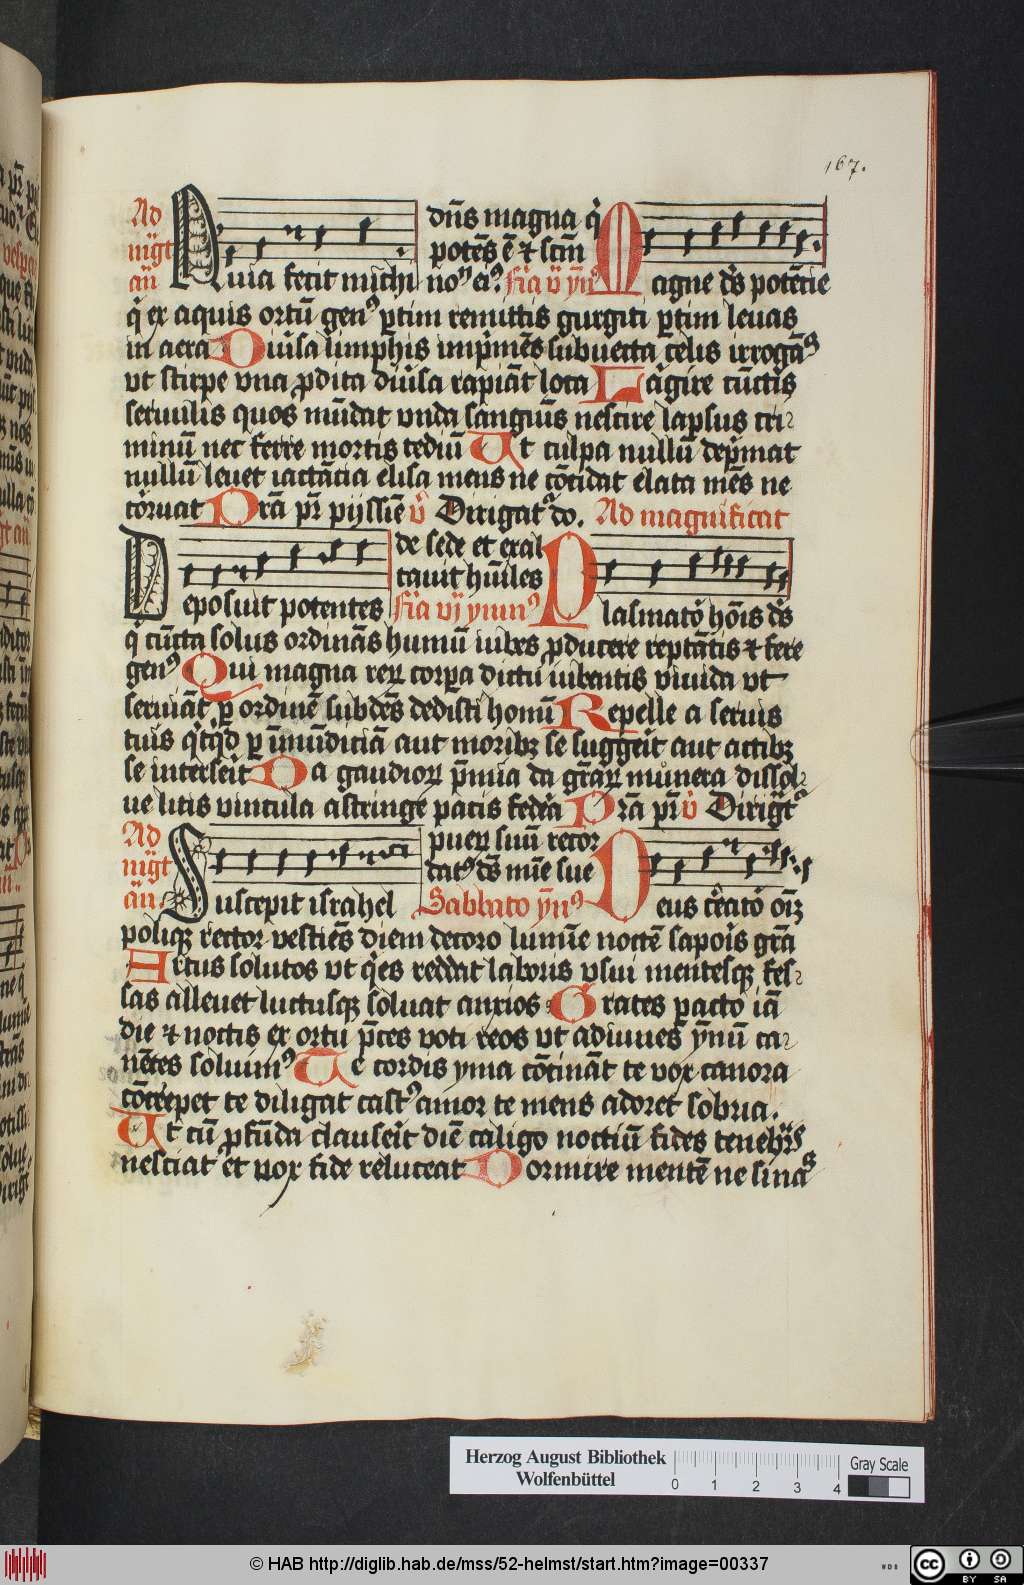 167.
Ad
mg̃t
añ
Quia fecit michi
dñs magna q̃
potẽs ẽ ⁊ scm̃
noꝰ eiꝰ
fr̃ia v ym̃ꝰ
Magne dẽs potẽtie
q̃ ex aquis ortũ genꝰ ꝑtim remittis gurgiti ꝑtim leuas
in aera Diũsa limphis imp̃mẽs subuecta celis irrogãs
vt stirpe vna ꝓdita diũsa rapiãt loca Lãgire cũctis
seruulis quos mũdat vnda sanguĩs nescire lapsus cri-
minũ nec ferre mortis tediũ Ut culpa nullũ dep̃mat
nullũ leuet iactãcia elisa mens ne cõcidat elata mẽs ne
corruat Prã pr̃ pijssiẽ v̾ Dirigat̉ do. Ad magnificat
Deposuit potentes
de sede et exal
tauit hũiles
fr̃ia vj ymnꝰ
Plasmator̃ hoĩs dẽs
q̃ cũcta solus ordinãs humũ iubes ꝓducere reptãtis ⁊ fere
genꝰ Qui magna reꝝ corꝑa dictu iubentis viuida vt
seruiãt ꝑ ordinẽ subdẽs dedisti homĩ Repelle a seruis
tuis q̃cq̃d ꝑ ĩmũdiciã aut moribꝫ se suggeĩt aut actibꝫ
se interseĩt Da gaudioꝝ p̃mia da gr̃aꝝ munera dissol-
ue litis vincula astringe pacis federa Prã pr̃ v̾ Dirig̃t̉
Ad
mg̃t
añ.
Suscepit israhel
pueꝝ suũ recor
datꝰ dẽs mĩe sue
Sabbato ym̃ꝰ
Deus creator̃ oĩꝫ
poliqꝫ rector vestiẽs diem decoro lumĩe noctẽ sapoĩs gr̃a
Artus solutos vt q̃es reddat laboris vsui mentesqꝫ fes-
sas alleuet luctusqꝫ soluat anxios Grates pacto iã
die ⁊ noctis ex ortu p̃ces voti reos vt adiuues ym̃ũ ca-
nẽtes soluimꝰ Te cordis yma cõcinãt te vox canora
cõcrepet te diligat castꝰ amor te mens adoret sobria.
Ut cũ ꝓfũda clauseĩt diẽ caligo noctiũ fides tenebr̃s
nesciat et nox fide reluceat Dormire mentẽ ne sinas
Herzog August Bibliothek
Wolfenbüttel
0 1 2 3 4
Gray Scale
© HAB http://diglib.hab.de/mss/52-helmst/start.htm?image=00337
cc BY SA